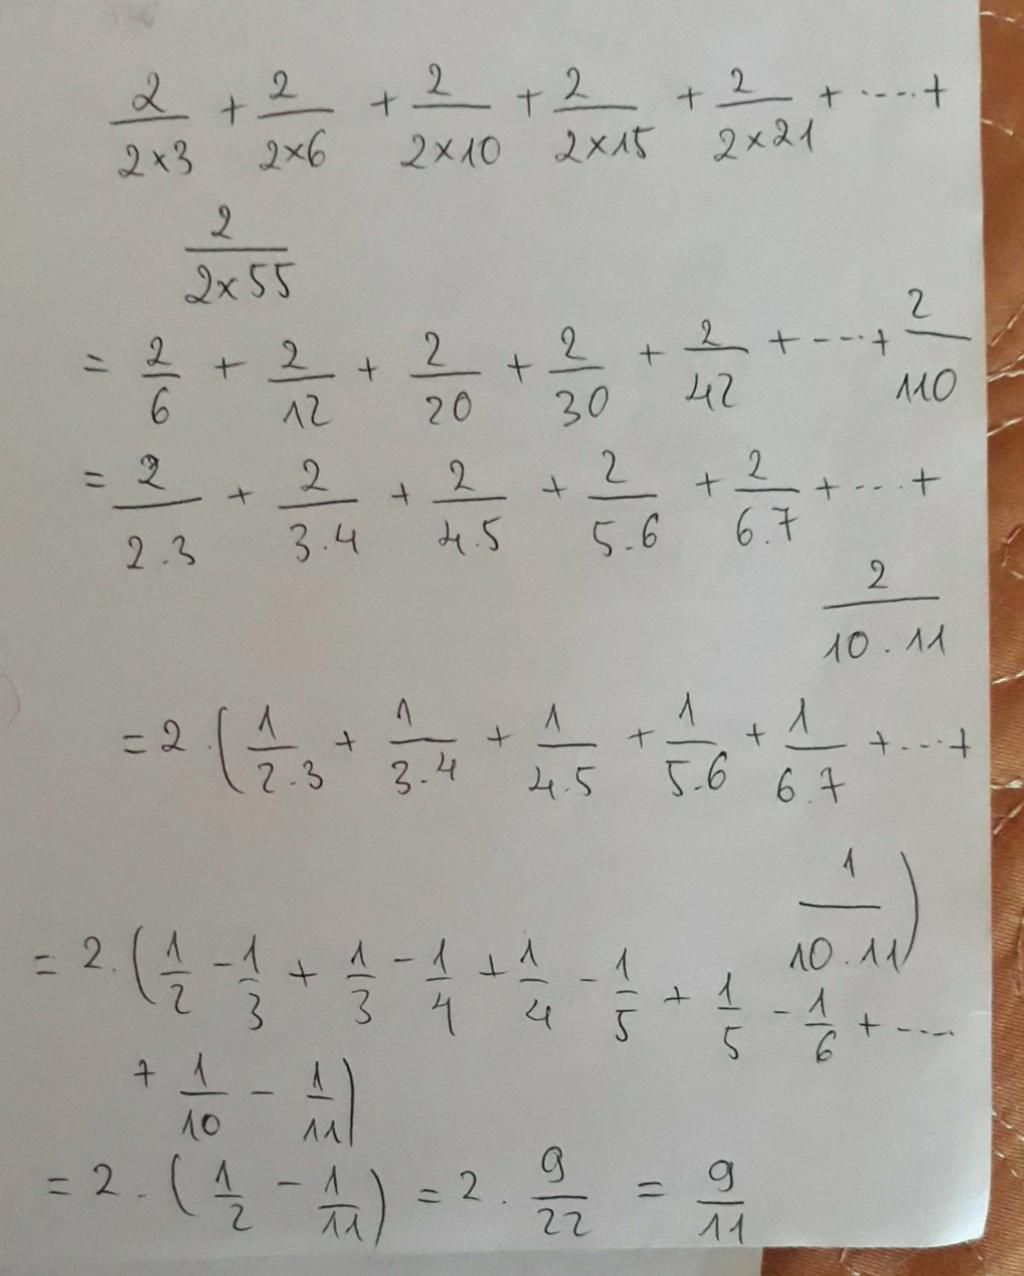 2/(2×3) + 2/(2×6) + 2/(2×10) + 2/(2×15) + 2/(2×21) + ..... +
2/(2×55)
= 2/6 + 2/12 + 2/20 + 2/30 + 2/42 + ---- + 2/110
= 2/(2.3) + 2/(3.4) + 2/(4.5) + 2/(5.6) + 2/(6.7) + ... +
2/(10.11)
= 2.(1/(2.3) + 1/(3.4) + 1/(4.5) + 1/(5.6) + 1/(6.7) + ... +
1/(10.11))
= 2.(1/2 - 1/3 + 1/3 - 1/4 + 1/4 - 1/5 + 1/5 - 1/6 + ....
+ 1/10 - 1/11)
= 2.(1/2 - 1/11) = 2. 9/22 = 9/11